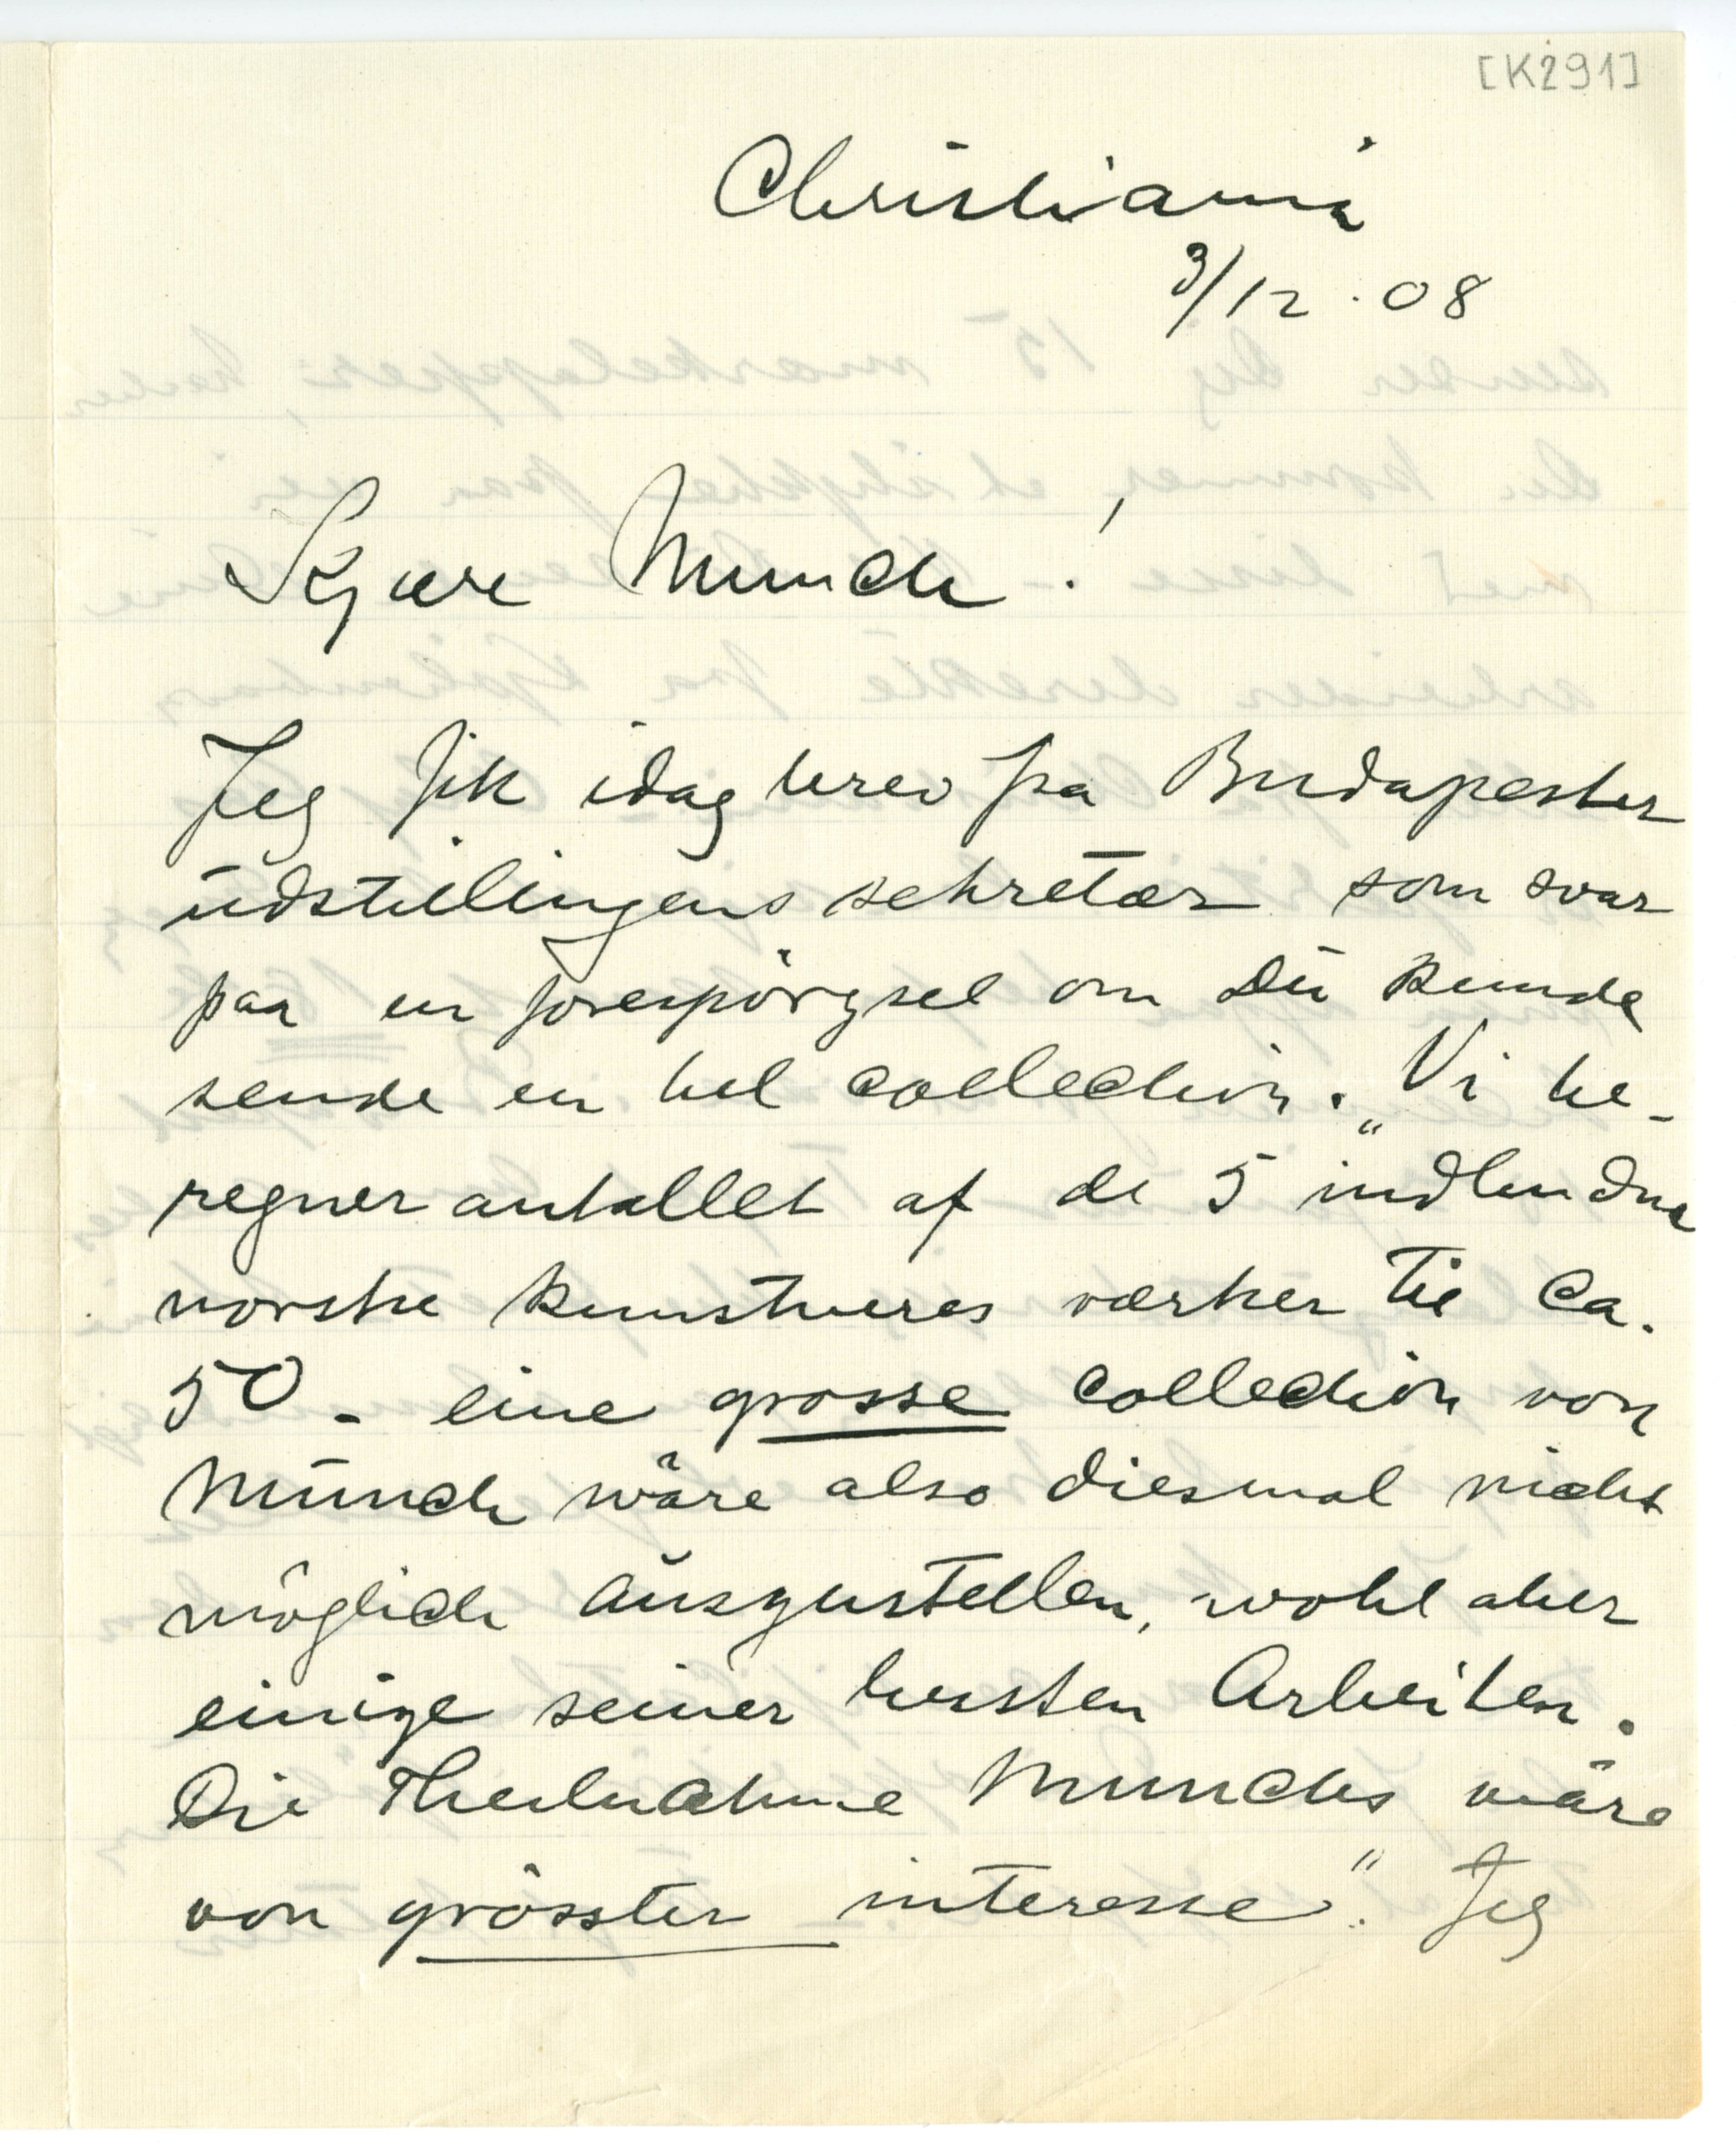 [K291]
Christiania
3/12.08
Kjære Munch!
Jeg fik idag brev fra Budapester
udstillingens sekretær som svar
paa en forespörgsel om Du kunde
sende en hel collection. „Vi be-
regner antallet af de 5 indbudne
norske kunstneres værker til ca.
50 - eine grosse collection von
Munch wäre also diesmal nicht
möglich auszustellen, wohl aber
einige seiner besten Arbeiten.
Die Theilnahme Munchs wäre
von grösster interesse". Jeg